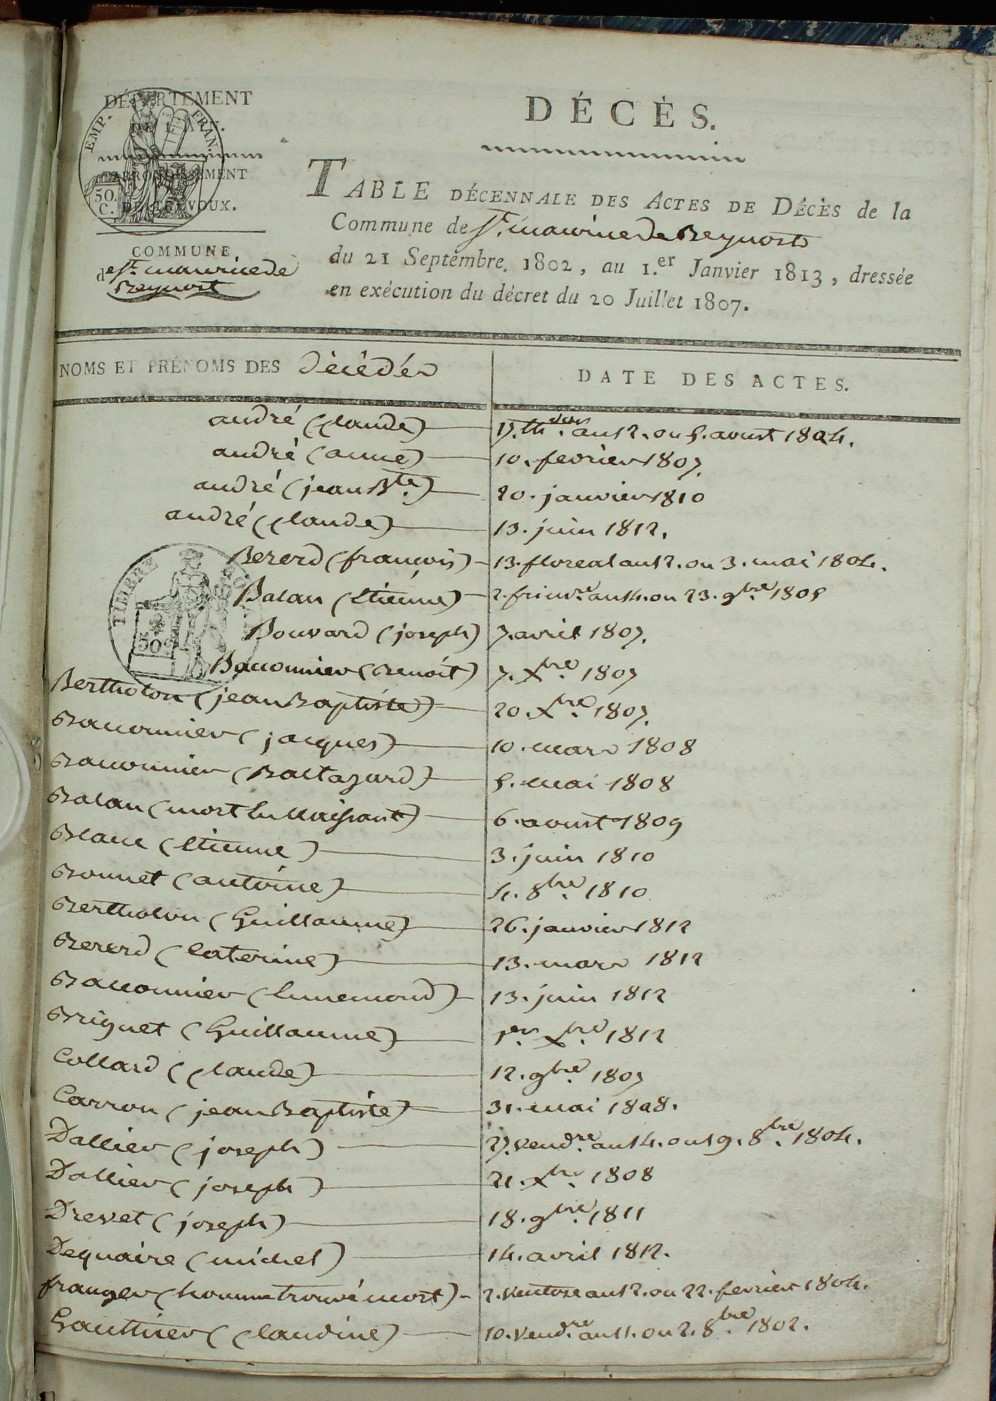 DÉPARTEMENT
DE L'AIN.
ARRONDISSEMENT
DE TRÉVOUX.
EMP. FRAN.
50. C.
COMMUNE
de St. maurice de
Beynost
DÉCÈS.
TABLE DÉCENNALE DES ACTES DE DÉCÈS de la
Commune de St. maurice de Beynost
du 21 Septembre 1802, au 1.er Janvier 1813, dressée
en exécution du décret du 20 Juillet 1807.
NOMS ET PRÉNOMS DES décédés
DATE DES ACTES.
andré (Claude) 17. th.dor an 12. ou 5. aoust 1804.
andré (anne) 10. fevrier 1807.
andré (jean Bte.) 20. janvier 1810
andré (Claude) 13. juin 1812.
Bererd (françois) 13. floreal an 12. ou 3. mai 1804.
TIMBRE
50
Balan (Etienne) 2. frim.re an 14. ou 23. 9bre. 1805
Bouvard (joseph) 7. avril 1807.
Baconnier (Benoit) 7. Xbre. 1807
Bertholon (jean Baptiste) 20. Xbre. 1807.
Baconnier (jacques) 10. mars 1808
Baconnier (Baltazard) 5. mai 1808
Balan (mort en Naissant) 6. aoust 1809
Blanc (Etienne) 3. juin 1810
Bonnet (antoine) 4. 8bre. 1810
Bertholon (Guillaume) 26. janvier 1812
Bererd (Caterine) 13. mars 1812
Baconnier (Ennemond) 13. juin 1812
Briguet (Guillaume) 1er. Xbre. 1812
Collard (Claude) 12. 9bre. 1807
Carron (jean Baptiste) 31. mai 1808.
Dallier (joseph) 27. vend.re an 14. ou 19. 8bre. 1804.
Dallier (joseph) 21. Xbre. 1808
Drevet (joseph) 18. 9bre. 1811
Dequaire (michel) 14. avril 1812.
franger (homme trouvé mort) 2. ventose an 12. ou 22. fevrier 1804.
Gauthier (Claudine) 10. vend.re an 11. ou 2. 8bre. 1802.